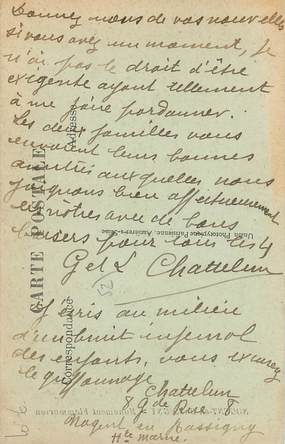 Donnez nous de vos nouvelles
si vous avez un moment, je
n'ai pas le droit d'être
exigente ayant tellement
à me faire pardonner.
Les deux familles vous
envoient leurs bonnes
amitiés auxquelles nous
joignons bien affectueusement
les nôtres avec de bons
baisers pour tous les 4
G et L Chattelun
J'écris au milieu
d'un bruit infernal
des enfants, vous excuserez
le griffonnage
Chattelun
8 q de Rue
Nogent en Bassigny
Hte marne.
CARTE POSTALE
Correspondance
Adresse
Union Phototypique Parisienne, Asnières-Seine